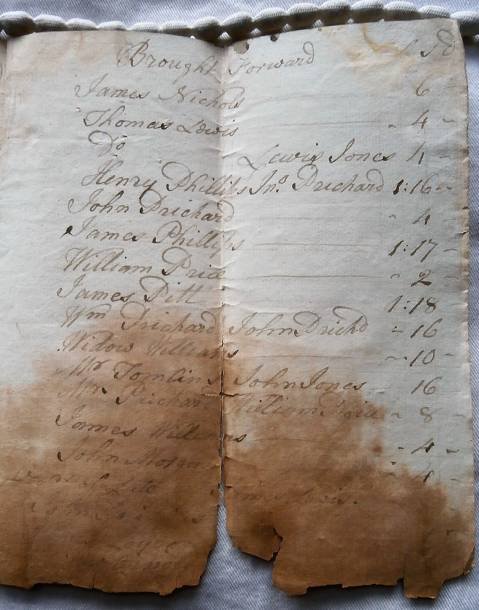 Brought Forward £ S D
James Nichols 6 -
Thomas Lewis - 4 -
Do Lewis Jones 4 -
Henry Phillips Jno. Prichard 1:16 -
John Prichard - 4
James Phillips 1:17 -
William Price - 2
James Pitt 1:18
Wm Prichard John Prichd - 16
Widow Williams - 10 -
Mr Tomlins John Jones - 16
Wm Prichard William Price - 8
James Williams - 4 -
John Morgan - 4